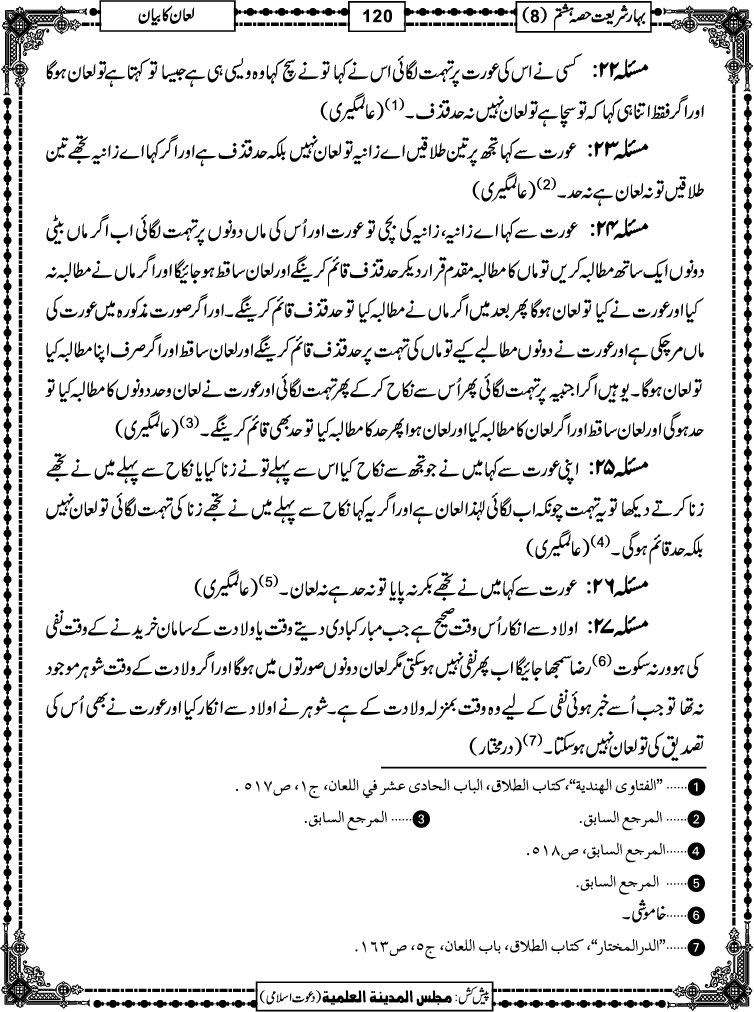 بہار شریعت حصہ ہشتم (8)
120
لعان کا بیان
مسئلہ ۲۲: کسی نے اس کی عورت پر تہمت لگائی اس نے کہا تو نے سچ کہا وہ ویسی ہی ہے جیسا تو کہتا ہے تو لعان ہوگا
اور اگر فقط اتنا ہی کہا کہ تو سچا ہے تو لعان نہیں نہ حد قذف۔(1) (عالمگیری)
مسئلہ ۲۳: عورت سے کہا تجھ پر تین طلاقیں اے زانیہ تو لعان نہیں بلکہ حد قذف ہے اور اگر کہا اے زانیہ تجھے تین
طلاقیں تو نہ لعان ہے نہ حد۔(2) (عالمگیری)
مسئلہ ۲۴: عورت سے کہا اے زانیہ، زانیہ کی بچی تو عورت اور اُس کی ماں دونوں پر تہمت لگائی اب اگر ماں بیٹی
دونوں ایک ساتھ مطالبہ کریں تو ماں کا مطالبہ مقدم قرار دیکر حد قذف قائم کرینگے اور لعان ساقط ہو جائیگا اور اگر ماں نے مطالبہ نہ
کیا اور عورت نے کیا تو لعان ہوگا پھر بعد میں اگر ماں نے مطالبہ کیا تو حد قذف قائم کرینگے۔ اور اگر صورت مذکورہ میں عورت کی
ماں مر چکی ہے اور عورت نے دونوں مطالبے کیے تو ماں کی تہمت پر حد قذف قائم کرینگے اور لعان ساقط اور اگر صرف اپنا مطالبہ کیا
تو لعان ہوگا۔ یوہیں اگر اجنبیہ پر تہمت لگائی پھر اُس سے نکاح کر کے پھر تہمت لگائی اور عورت نے لعان و حد دونوں کا مطالبہ کیا تو
حد ہوگی اور لعان ساقط اور اگر لعان کا مطالبہ کیا اور لعان ہوا پھر حد کا مطالبہ کیا تو حد بھی قائم کرینگے۔(3) (عالمگیری)
مسئلہ ۲۵: اپنی عورت سے کہا میں نے جو تجھ سے نکاح کیا اس سے پہلے تو نے زنا کیا یا نکاح سے پہلے میں نے تجھے
زنا کرتے دیکھا تو یہ تہمت چونکہ اب لگائی لہٰذا لعان ہے اور اگر یہ کہا نکاح سے پہلے میں نے تجھے زنا کی تہمت لگائی تو لعان نہیں
بلکہ حد قائم ہوگی۔(4) (عالمگیری)
مسئلہ ۲۶: عورت سے کہا میں نے تجھے بکر نہ پایا تو نہ حد ہے نہ لعان۔(5) (عالمگیری)
مسئلہ ۲۷: اولاد سے انکار اُس وقت صحیح ہے جب مبارکبادی دیتے وقت یا ولادت کے سامان خریدنے کے وقت نفی
کی ہو ورنہ سکوت(6) رضا سمجھا جائیگا اب پھر نفی نہیں ہوسکتی مگر لعان دونوں صورتوں میں ہوگا اور اگر ولادت کے وقت شوہر موجود
نہ تھا تو جب اُسے خبر ہوئی نفی کے لیے وہ وقت بمنزلہ ولادت کے ہے۔ شوہر نے اولاد سے انکار کیا اور عورت نے بھی اُس کی
تصدیق کی تو لعان نہیں ہوسکتا۔(7) (درمختار)
1 ...... ”الفتاوی الھندیة“،کتاب الطلاق، الباب الحادی عشر في اللعان، ج١، ص٥١٧ .
2 ...... المرجع السابق. 3 ...... المرجع السابق.
4 ......المرجع السابق، ص٥١٨.
5 ...... المرجع السابق.
6 ......خاموشی۔
7 ......”الدرالمختار“، کتاب الطلاق، باب اللعان، ج٥، ص١٦٣.
پیش کش: مجلس المدینۃ العلمیۃ (دعوت اسلامی)